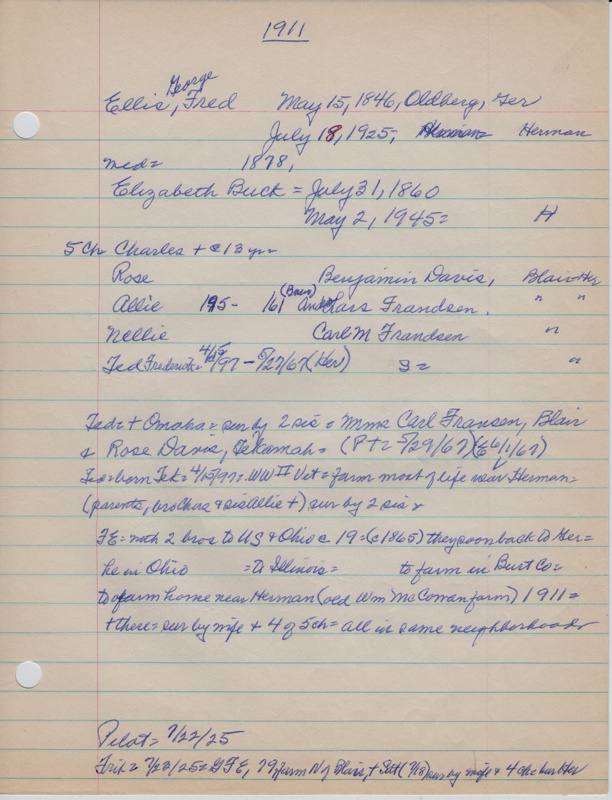 1911
George
Ellis, Fred May 15, 1846, Oldberg, Ger
July 18, 1925, Herman
med= 1878,
Elizabeth Buck = July 31, 1860
May 2, 1945= H
5 Ch Charles + c 13 yr=
Rose Benjamin Davis, Blair Her
Allie 195- 161 (Baes) Lars Frandsen. " "
Nellie Carl M Frandsen "
Ted Frederick= 4/15/97 - 5/27/67 (Her) S= "
Ted= + Omaha= sur by 2 sis = Mmes Carl Fransen, Blair
& Rose Davis, Tekamah= (PT= 5/29/67) (E 6/1/67)
Ted=born Tek= 4/15/97= WW II Vet= farm most of life near Herman=
(parents, brothers & sis Allie +) sur by 2 sis
FE= with 2 bros to US & Ohio c 19= (c1865) they soon back to Ger=
he in Ohio =to Illinois= to farm in Burt Co=
to farm home near Herman (old Wm McCowan farm) 1911=
+ there= sur by wife & 4 of 5 ch= all in same neighborhood
Pilot= 7/22/25
Trib= 7/23/25= GFE, 79, farm N of Blair, + Sat (7/18) sur by wife & 4 ch= bur Her